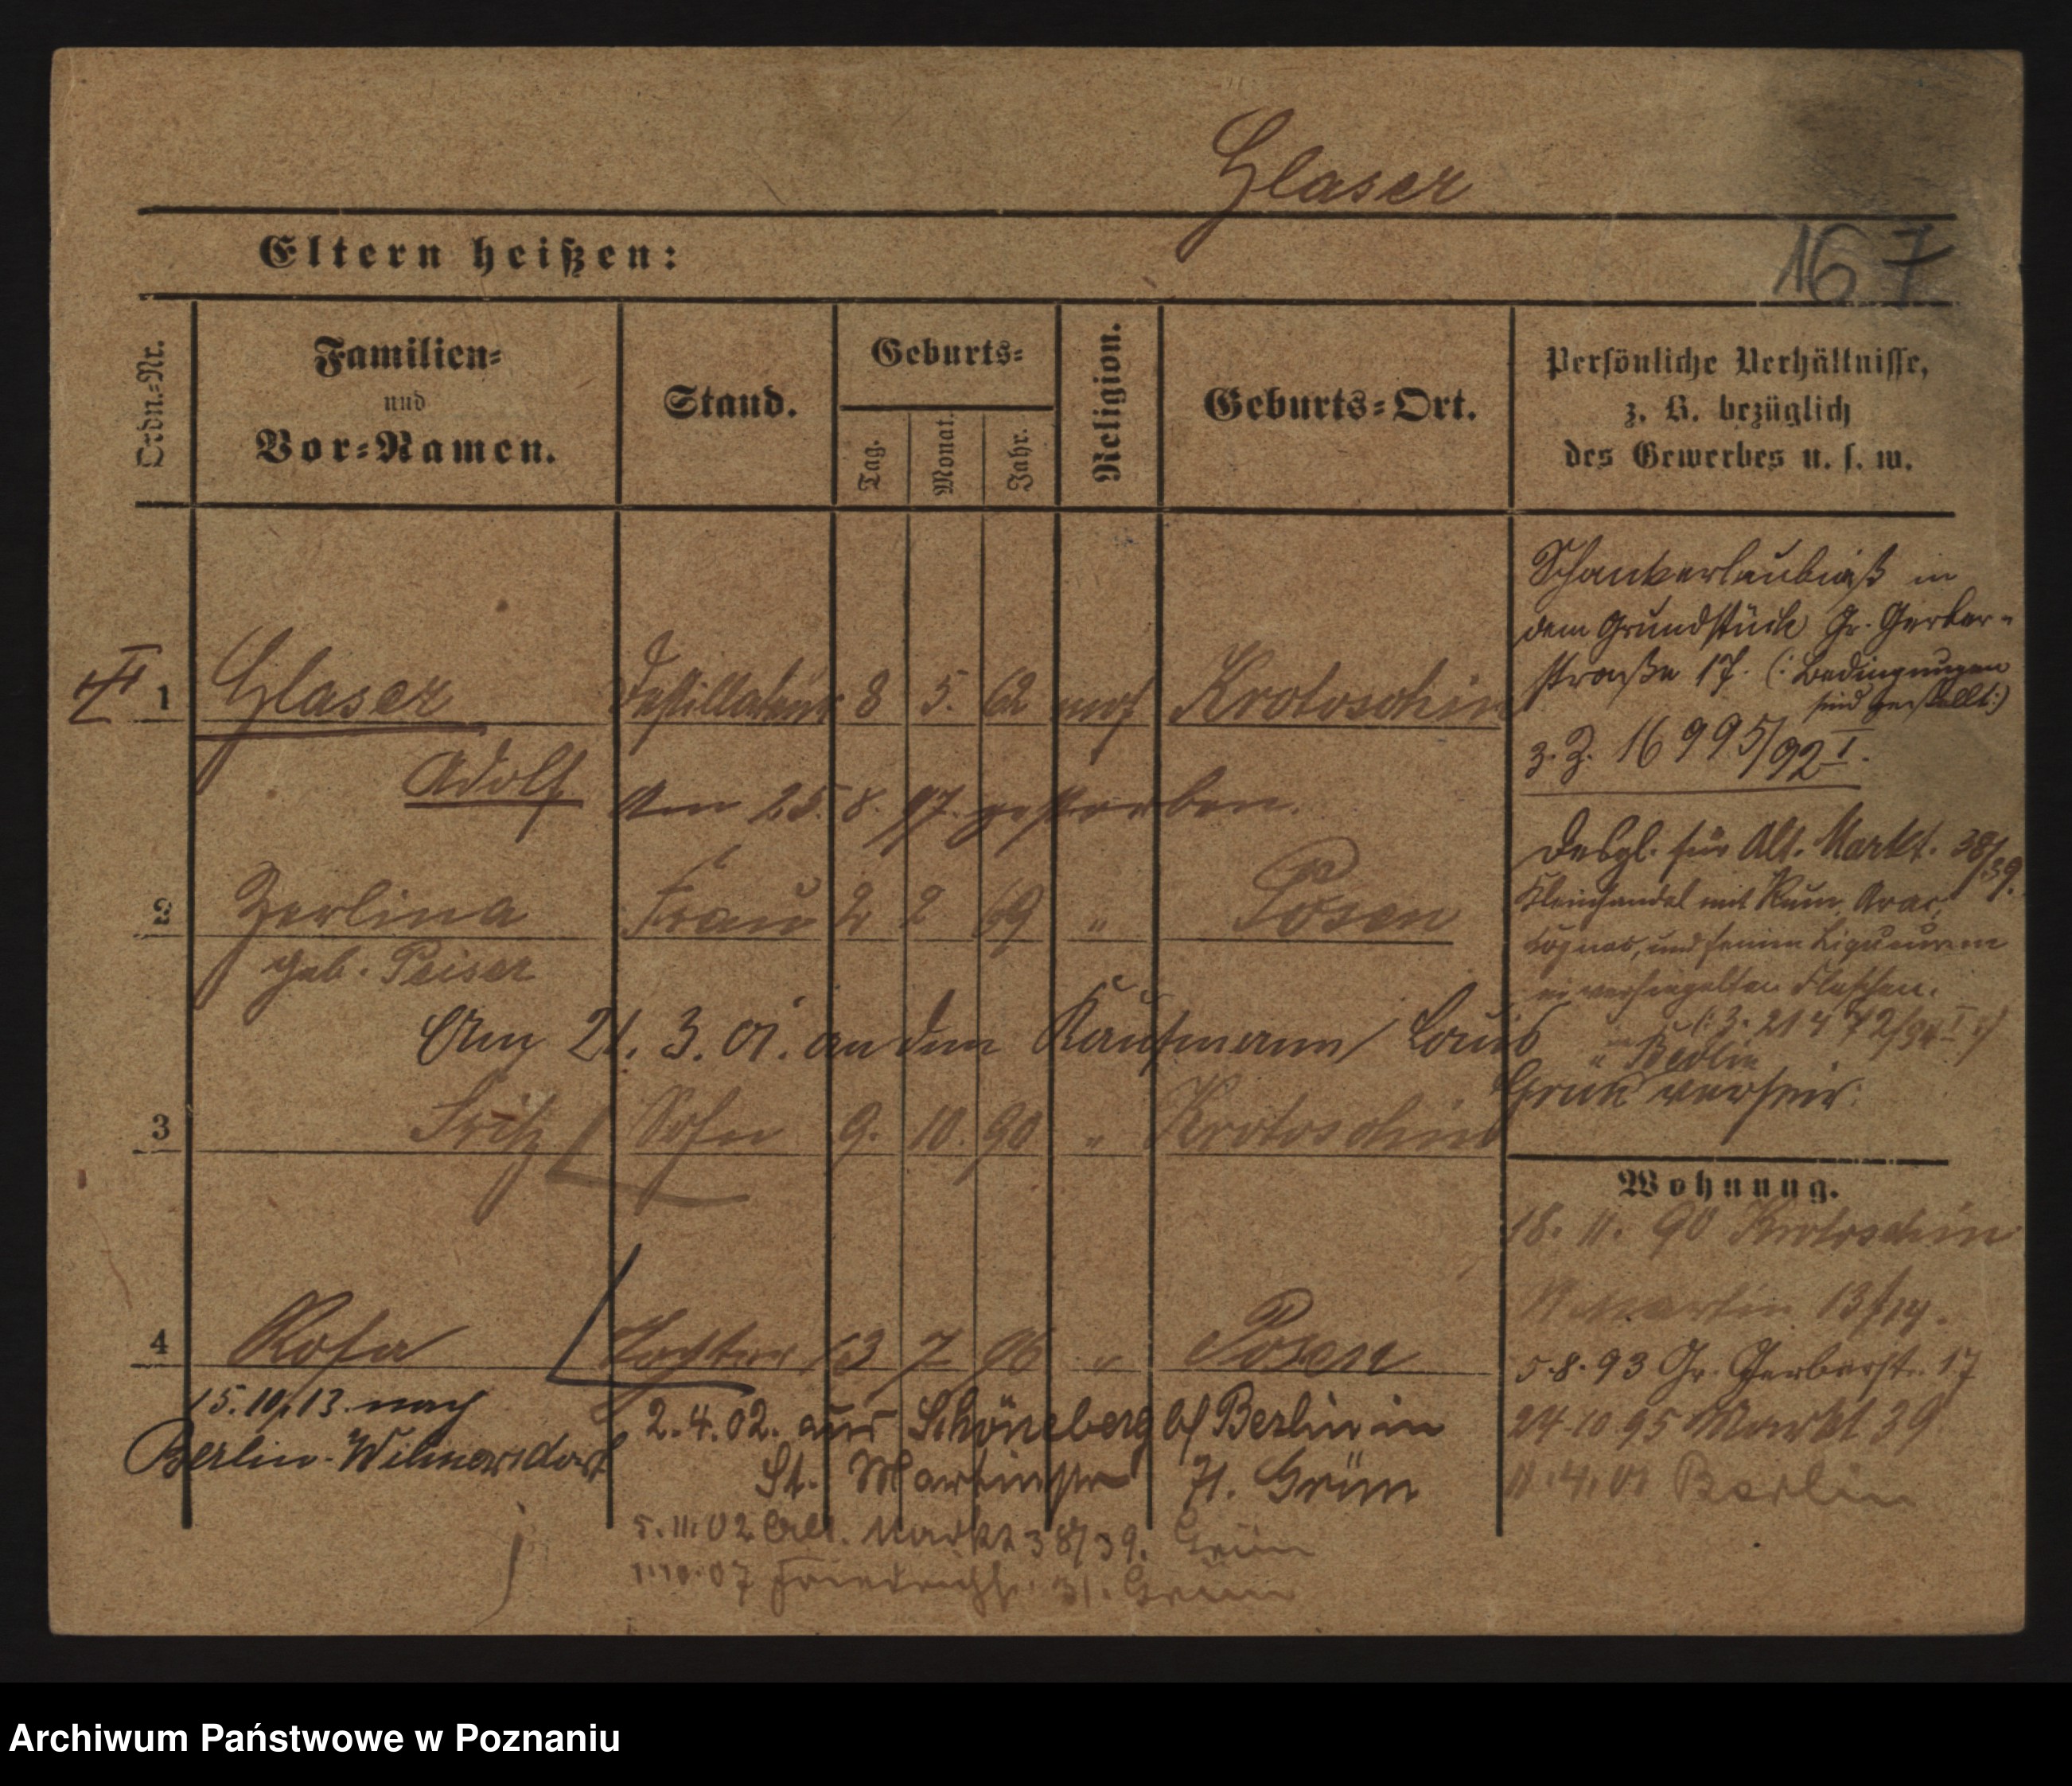 Glaser
167
Eltern heißen:
Ordn.-Nr.
Familien-
und
Vor-Namen.
Stand.
Geburts-
Tag.
Monat.
Jahr.
Religion.
Geburts-Ort.
Persönliche Verhältnisse,
z. B. bezüglich
des Gewerbes u. s. w.
1 Glaser Destillateur 8 5. 62 mos Krotoschin
Adolf
Am 25. 8. 97. gestorben.
2 Zerlina Frau 2 2 69 " Posen
geb. Peiser
Am 21. 3. 01. an den Kaufmann Louis
Grün verheir.
3 Fritz Sohn 9. 10. 90 " Krotoschin
4 Rosa Tochter 13 7 96 " Posen
15.10.13. nach
Berlin-Wilmersdorf
2.4.02. aus Schöneberg b/ Berlin in
St. Martinstr 71. Grün
5.11.02 Alt. Markt 38/39. Grün
1.10.07 Friedrichstr. 31. Grün
Schankerlaubniß in
dem Grundstück Gr. Gerber-
straße 17. (: Bedingungen
sind gestellt :)
z. Z. 16995/92 I.
Desgl. für Alt. Markt. 38/39.
Kleinhandel mit Rum, Arac,
Cognac, und feinen Liqueuren
in versiegelten Flaschen.
Berlin
Wohnung.
18. 11. 90 Krotoschin
Martin 13/14.
5.8.93 Gr. Gerberstr. 17
24.10 95 Markt 39
11.4.01 Berlin
Archiwum Państwowe w Poznaniu